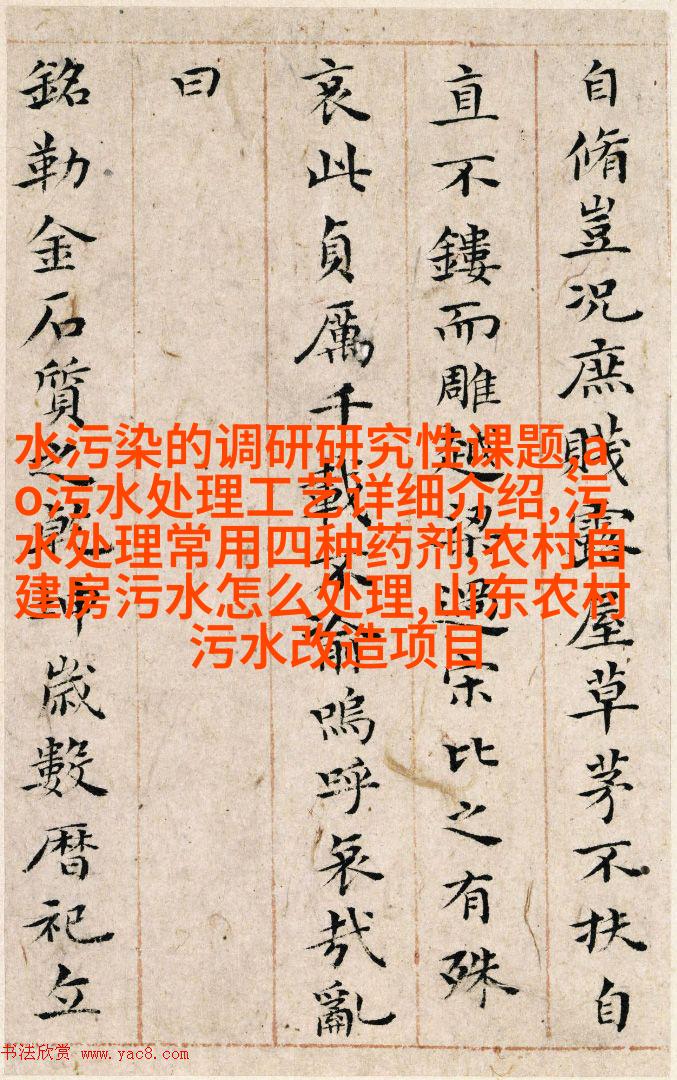 自脩豈况庶賤露屋草茅不扶自
直不鏤而雕越梁過宋比之有殊
哀此貞厲千載不渝嗚呼哀哉亂
曰
銘勒金石質之乾坤歲數曆祀立
水污染的调研研究性课题,a
o污水处理工艺详细介绍,污
水处理常用四种药剂,农村自
建房污水怎么处理,山东农村
污水改造项目
书法欣赏 www.yac8.com